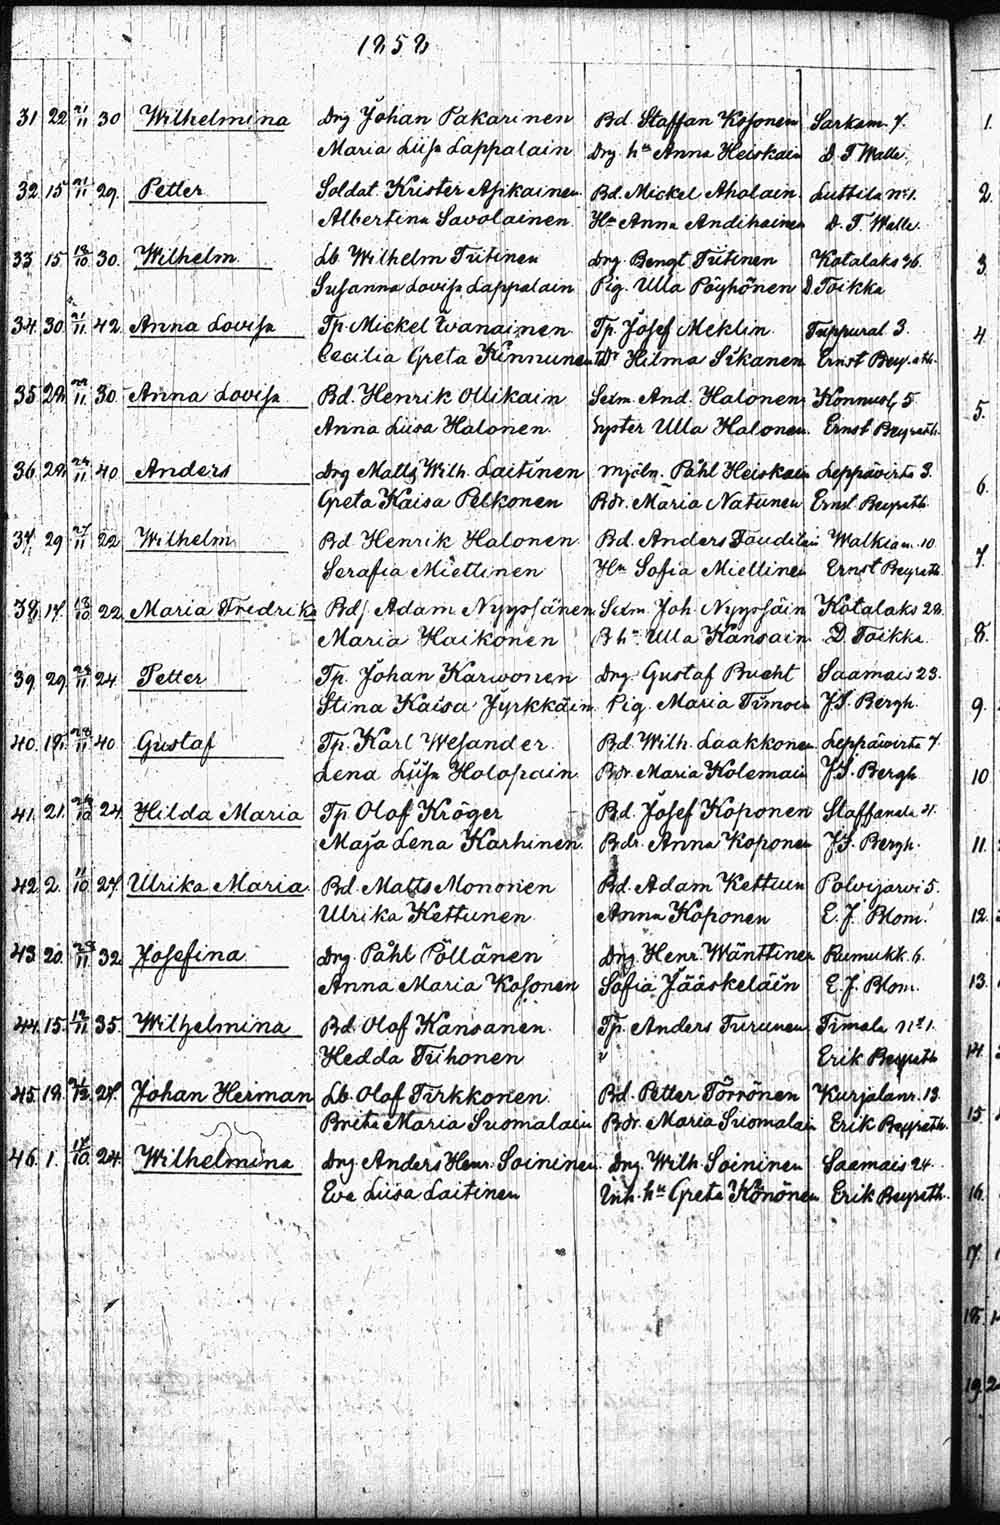 1858
31 22 21/11 30 Wilhelmina Drg Johan Pakarinen Bd. Staffan Kosonen Sarkam. 7.
Maria Liisa Lappalain Drg. hu Anna Heiskain D. T. Walle
32 15 21/11 29. Petter Soldat Krister Asikainen Bd. Mickel Aholain Luttila No 1.
Albertina Savolainen Hu Anna Andikainen D. T. Walle.
33 15 18/10 30. Wilhelm Lb. Wilhelm Tiitinen Drg. Bengt Tiitinen Kotalaks 36.
Susanna Lovisa Lappalain Pig. Ulla Pöyhönen D. Toikka
34. 30. 21/11 42. Anna Lovisa Tp. Mickel Ivanainen Tp. Josef Meklin Tuppural 3.
Cecilia Greta Kinnunen Dr Hilma Sikanen Ernst Beyrath.
35 22. 22/11 30. Anna Lovisa Bd. Henrik Ollikain Sexm. And. Halonen Konnusl. 5
Anna Liisa Halonen. Syster Ulla Halonen. Ernst Beyrath.
36. 22. 24/11 40 Anders Drg Matts Wilh. Laitinen Mjöln. Påhl Heiskain Leppävirta 3.
Greta Kaisa Pelkonen Bdr. Maria Natunen Ernst Beyrath.
37. 29 27/11 22 Wilhelm Bd Henrik Halonen Bd. Anders Walkiam. 10
Serafia Miettinen Hu Sofia Miettinen Ernst Beyrath.
38. 17. 18/10 22. Maria Fredrika Bds. Adam Nyyssönen Sexm. Joh. Nyyssöin Kotalaks 28.
Maria Haikonen B hu. Ulla Kansain D. Toikka.
39. 29. 23/11 24. Petter Tp. Johan Karwonen Drg. Gustaf Bucht Saamais 23.
Stina Kaisa Jyrkkäin. Pig. Maria Timoin J. S. Bergh.
40. 19. 28/11 40 Gustaf Tp. Karl Wesander Bd. Wilh. Laakkonen Leppävirta 7.
Lena Liisa Holopain Bdr. Maria Kolemain J. S. Bergh.
41. 21. 26/10 24. Hilda Maria Tp. Olof Kröger Bd. Josef Koponen Staffansla 4.
Maja Lena Karhinen. Bdr. Anna Koponen J. S. Bergh.
42. 2. 11/10 27. Ulrika Maria Bd. Matts Mononen Bd. Adam Kettuun Polvijarvi 5.
Ulrika Kettunen Anna Koponen E. J. Blom.
43. 20. 28/11 32 Josefina Drg. Påhl Pöllänen Drg. Henr. Wänttinen Rumukk. 6.
Anna Maria Kosonen Sofia Jääskeläin E. J. Blom.
44. 15. 12/11 35. Wilhelmina Bd. Olof Kansanen Tp. Anders Turunen Timola No 1.
Hedda Tiihonen " Erik Beyrath
45. 19. 27. Johan Herman Lb. Olof Tirkkonen Bd. Petter Törrönen Kurjalanr. 13.
Brita Maria Suomalain Bdr. Maria Suomalain Erik Beyrath.
46. 1. 17/10 24. Wilhelmina Drg. Anders Henr. Soininen Drg. Wilh. Soininen Saamais 24.
Eva Liisa Laitinen Inh. hu Greta Könönen Erik Beyrath.
1.
2.
3.
4
5.
6.
7.
8.
9.
10
11.
12.
13.
14.
15.
16.
17.
18.
19